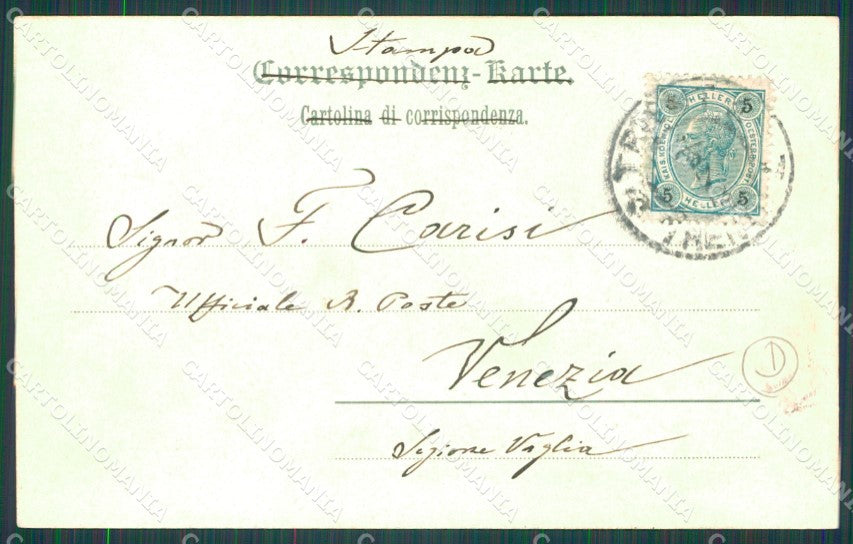 Stampa
Correspondenz-Karte.
Cartolina di corrispondenza.
5 HELLER 5
KAIS. KÖNIGL. OESTERR. POST
5 HELLER 5
Signor F. Carisi
Ufficiale R. Poste
Venezia
Sezione Vaglia
CARTOLINOMANIA